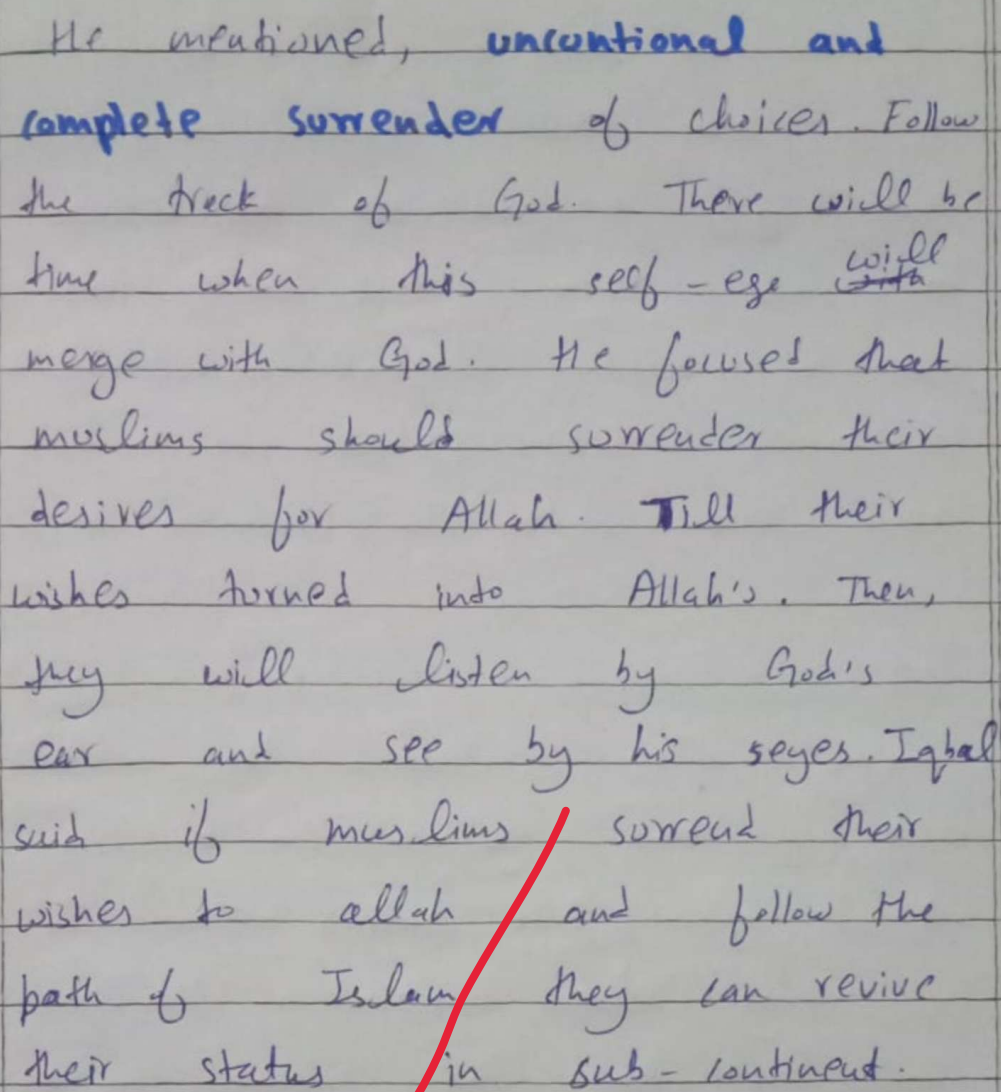 He mentioned, uncontional and
complete surrender of choices. Follow
the treck of God. There will be
time when this self-ego will
merge with God. He focused that
muslims should surrender their
desires for Allah. Till their
wishes turned into Allah's. Then,
they will listen by God's
ear and see by his seyes. Iqbal
said if muslims surrend their
wishes to allah and follow the
path of Islam they can revive
their status in sub-continent.